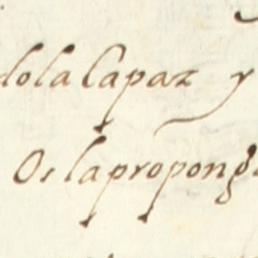 dola Capaz y
Os lapropong